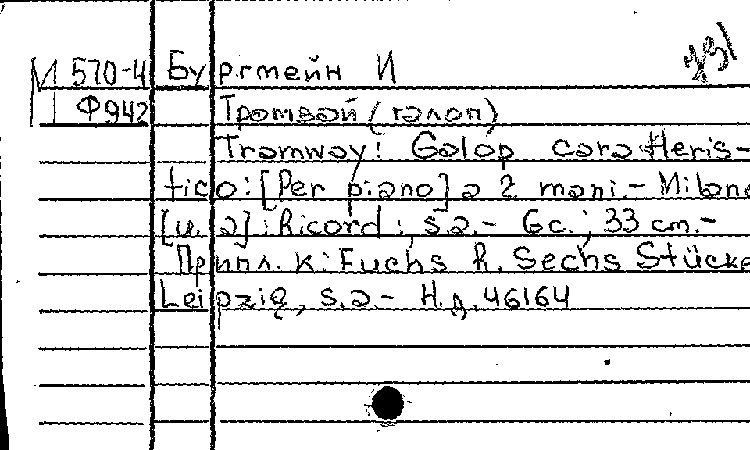 И 570-4 Бургмейн И 731
Ф942 Трамвай (галоп)
Tramway: Galop caratteris-
tico: [Per piano] a 2 mani. - Milano
[u. a]: Ricord; s.a. - 6c.; 33 cm. -
Припл. к: Fuchs R. Sechs Stücke
Leipzig, s.a. - Н.д. 46164